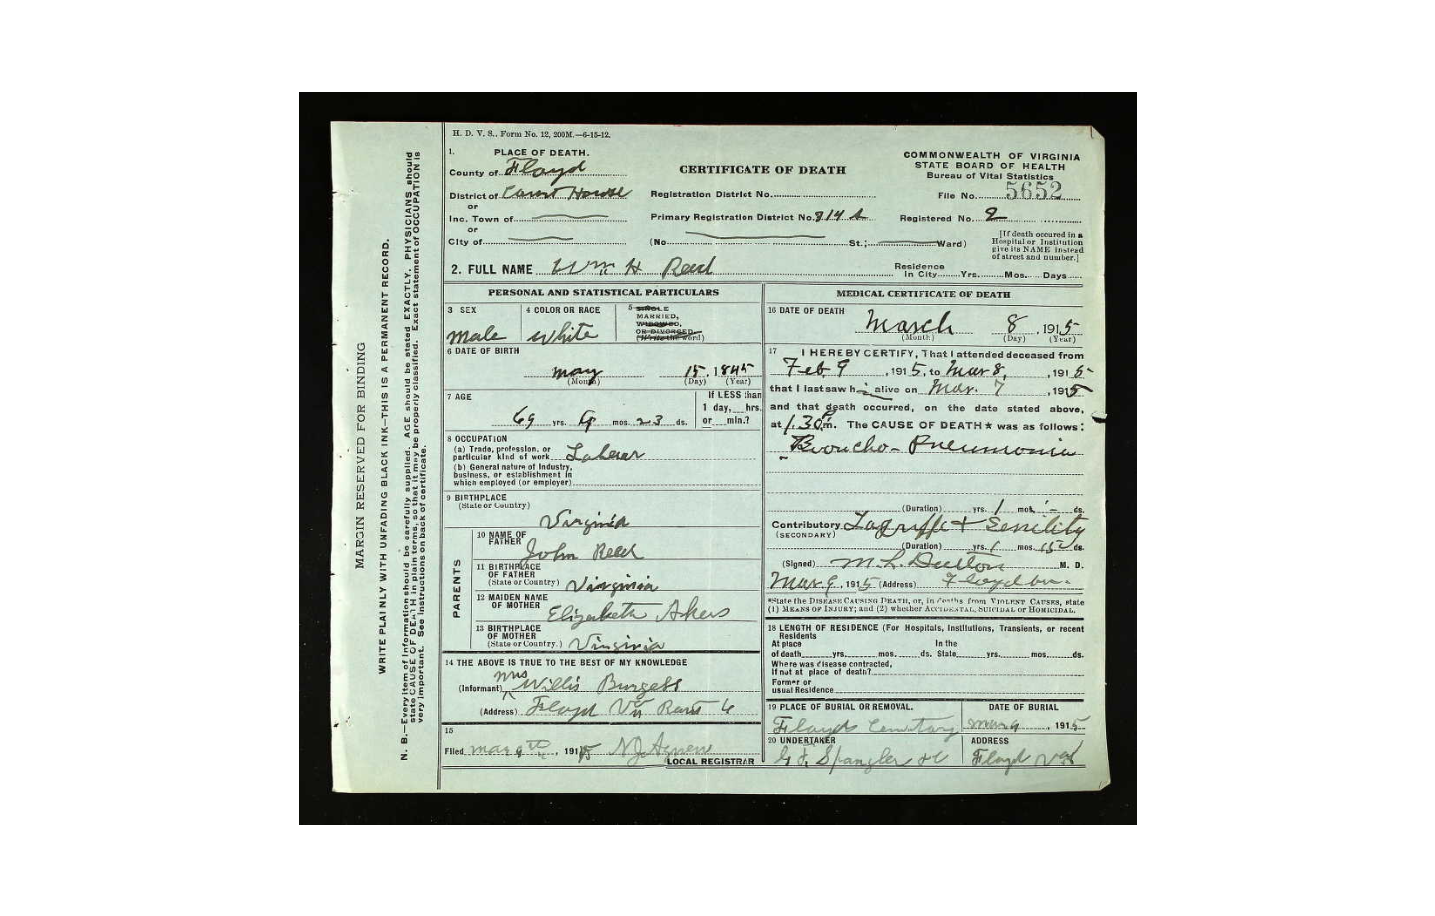 H. D. V. S., Form No. 12, 200M.—6-15-12.
1. PLACE OF DEATH.
County of Floyd
District of Court House
or
Inc. Town of
or
City of
CERTIFICATE OF DEATH
Registration District No.
Primary Registration District No. 814 A
(No. St.; Ward)
COMMONWEALTH OF VIRGINIA
STATE BOARD OF HEALTH
Bureau of Vital Statistics
File No. 5652
Registered No. 2
[If death occured in a
Hospital or Institution
give its NAME instead
of street and number.]
2. FULL NAME Wm H Reed
Residence
In City Yrs. Mos. Days
PERSONAL AND STATISTICAL PARTICULARS
3 SEX
male
4 COLOR OR RACE
White
5 SINGLE
MARRIED,
WIDOWED,
OR DIVORCED.
(Write the word)
6 DATE OF BIRTH
may 15, 1845
(Month) (Day) (Year)
7 AGE
69 yrs. 9 mos. 23 ds.
If LESS than
1 day, hrs.
or min.?
8 OCCUPATION
(a) Trade, profession, or
particular kind of work Laborer
(b) General nature of Industry,
business, or establishment in
which employed (or employer)
9 BIRTHPLACE
(State or Country)
Virginia
PARENTS
10 NAME OF
FATHER
John Reed
11 BIRTHPLACE
OF FATHER
(State or Country) Virginia
12 MAIDEN NAME
OF MOTHER
Elizabeth Akers
13 BIRTHPLACE
OF MOTHER
(State or Country.) Virginia
14 THE ABOVE IS TRUE TO THE BEST OF MY KNOWLEDGE
(Informant) Mrs Willis Burgess
(Address) Floyd Va
15
Filed mar 9th, 1915 Agnew
LOCAL REGISTRAR
MEDICAL CERTIFICATE OF DEATH
16 DATE OF DEATH
March 8, 1915
(Month) (Day) (Year)
17 I HEREBY CERTIFY, That I attended deceased from
Feb 9, 1915, to Mar 8, 1915
that I last saw h alive on Mar. 7 1915
and that death occurred, on the date stated above,
at 1.30 m. The CAUSE OF DEATH* was as follows:
Broncho-Pneumonia
(Duration) yrs. 1 mos. - ds.
Contributory Lagrippe + Senility
(SECONDARY)
(Duration) yrs. 1 mos. 15 ds.
(Signed) M. L. M. D.
Mar 9, 1915 (Address)
*State the DISEASE CAUSING DEATH, or, in deaths from VIOLENT CAUSES, state
(1) MEANS OF INJURY; and (2) whether ACCIDENTAL, SUICIDAL or HOMICIDAL.
18 LENGTH OF RESIDENCE (For Hospitals, Institutions, Transients, or recent
Residents
At place In the
of death yrs. mos. ds. State yrs. mos. ds.
Where was disease contracted,
If not at place of death?
Former or
usual Residence
19 PLACE OF BURIAL OR REMOVAL.
Floyd Cemetary
DATE OF BURIAL
mar 9, 1915
20 UNDERTAKER
Spangler
ADDRESS
Floyd Va
MARGIN RESERVED FOR BINDING
WRITE PLAINLY WITH UNFADING BLACK INK—THIS IS A PERMANENT RECORD.
N. B.—Every item of information should be carefully supplied. AGE should be stated EXACTLY. PHYSICIANS should
state CAUSE OF DEATH in plain terms, so that it may be properly classified. Exact statement of OCCUPATION is
very important. See instructions on back of certificate.